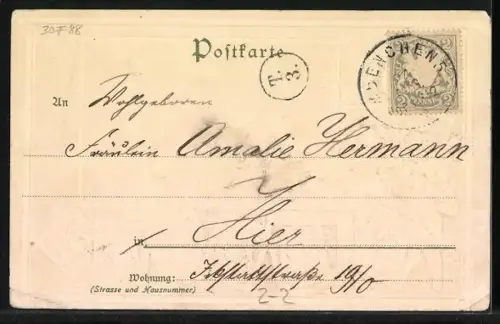 30F88
Postkarte
T.
3.
MUENCHEN 5
2 2
An Wohlgeboren
Fräulein Amalie Hermann
in Hier
Wohnung: 19/0
(Strasse und Hausnummer)
2-2